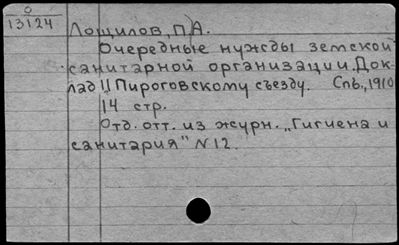 0
13124
Лощилов, П.А.
Очередные нужды земской
санитарной организации. Док-
лад 11 Пироговскому съезду. Спб., 1910
14 стр.
Отд. отт. из журн. „Гигиена и
санитария" N12.